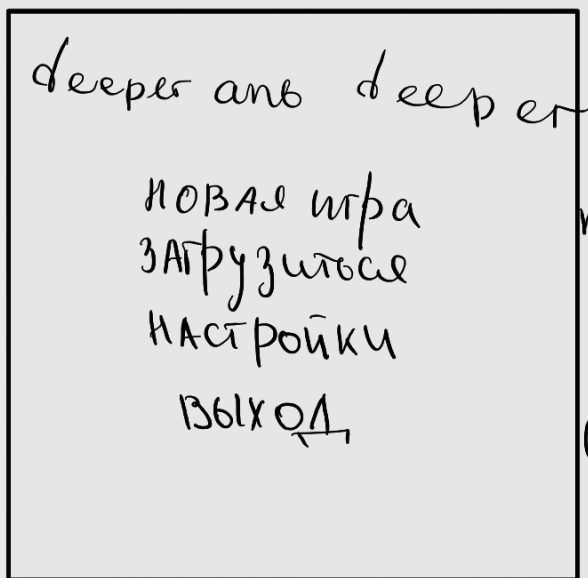 deeper and deeper
НОВАЯ игра
ЗАГРУЗИТЬСЯ
НАСТРОЙКИ
ВЫХОД